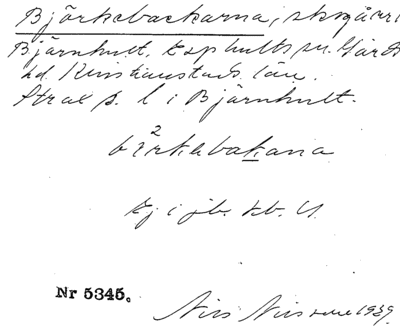 Björkebackarna, skogåker
Bjärnhult, Esphults sn. Gärds
hd. Kristianstads län.
Strax s. l i Bjärnhult.
bi²rkebakana
Ej i jb. kb. U.
Nr 5345.
Nils Nilsson 1929.